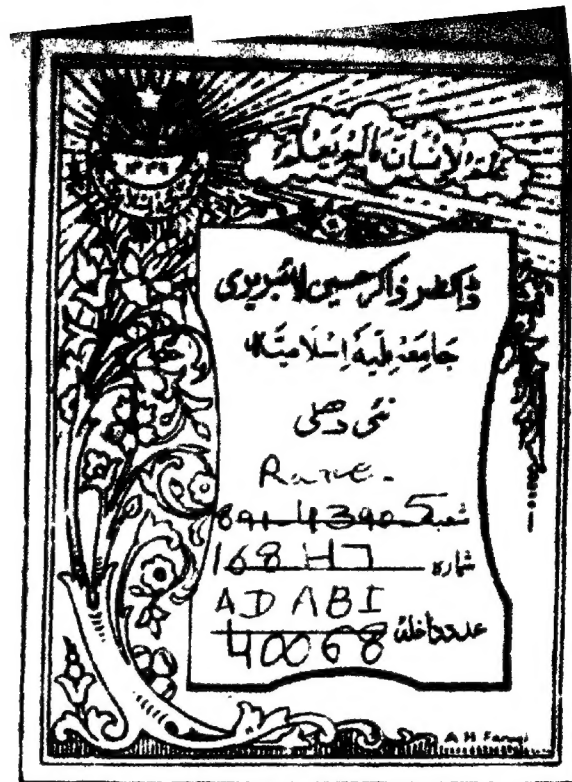 علم الانسان مالم یعلم
ڈاکٹر ذاکر حسین لائبریری
جامعہ ملیہ اسلامیہ
نئی دھلی
Rare.
شعبہ 891.43905
شمارہ 168 H7
ADABI
عدد داخلہ 40068
A H Faruqi